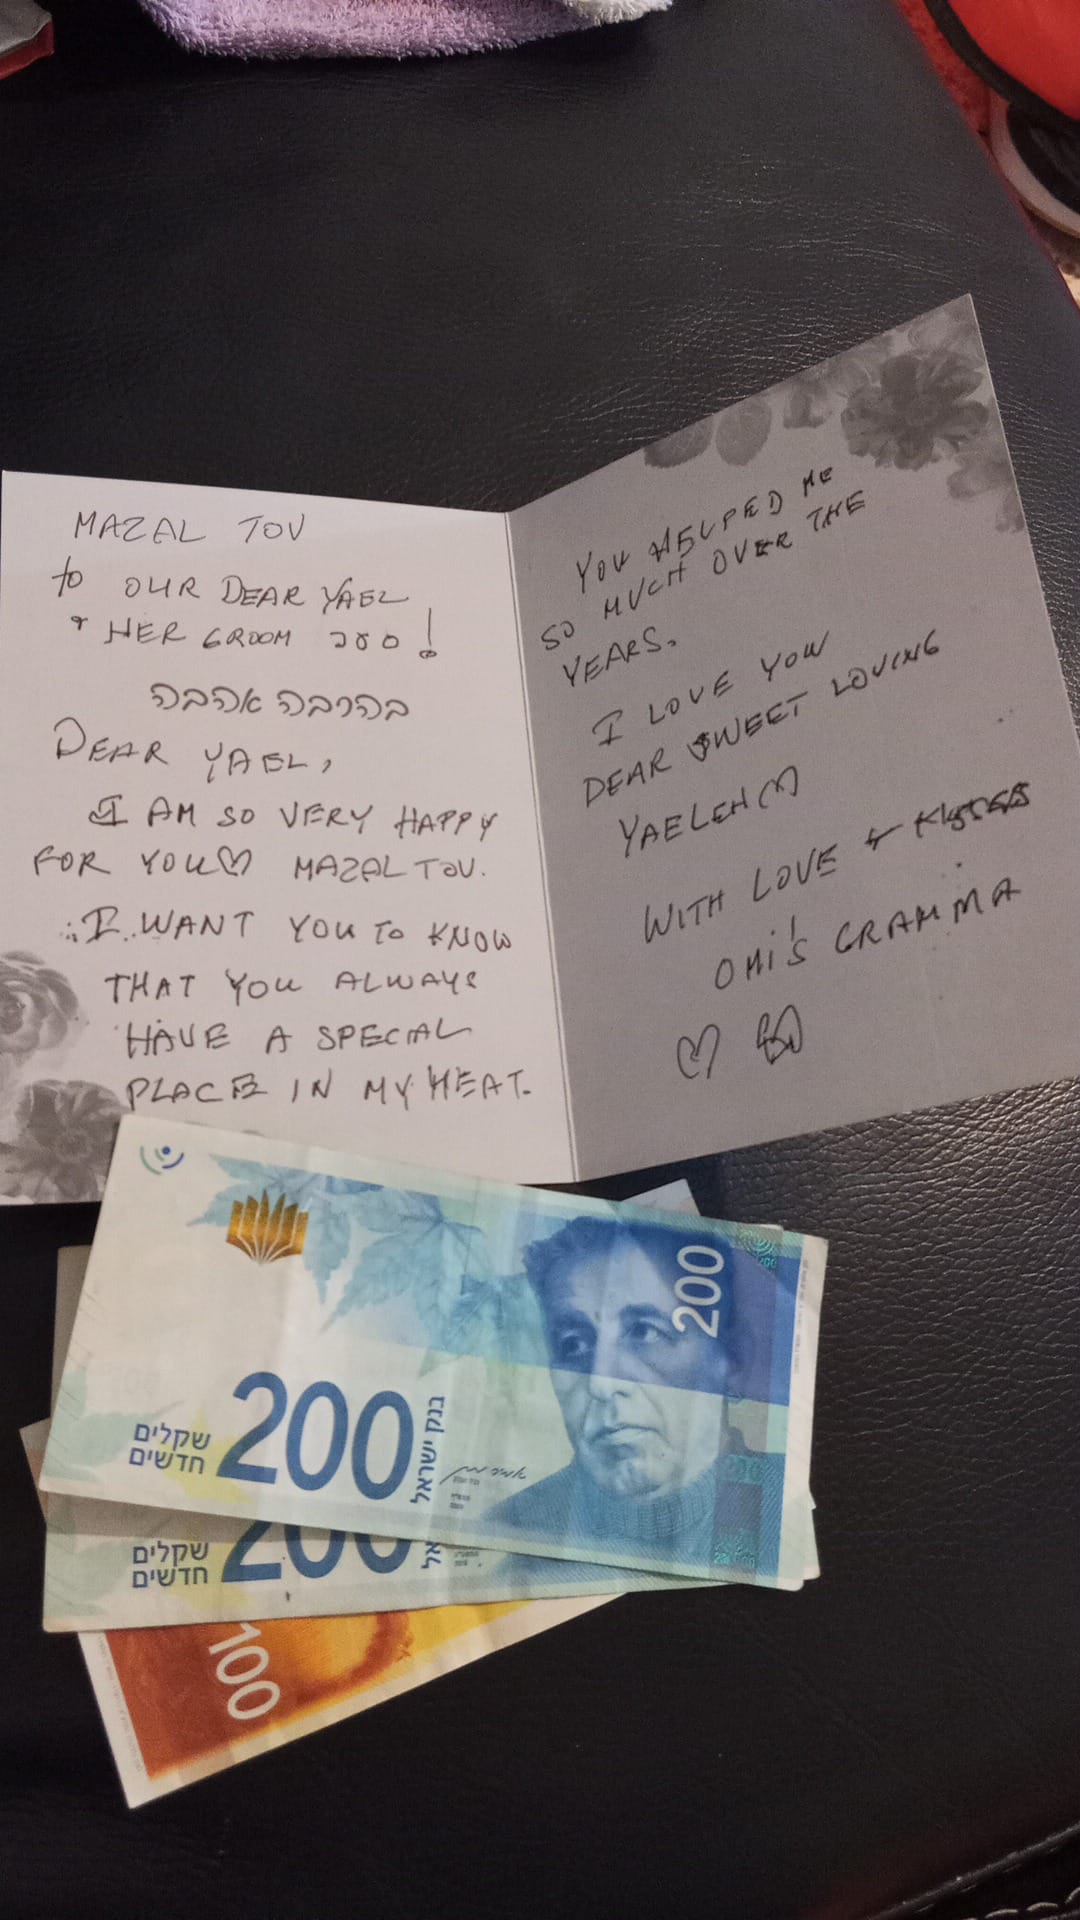 MAZAL TOV
to OUR DEAR YAEL
& HER GROOM !
בהרבה אהבה
DEAR YAEL,
I AM SO VERY HAPPY
FOR YOU♡ MAZAL TOV.
I WANT YOU TO KNOW
THAT YOU ALWAYS
HAVE A SPECIAL
PLACE IN MY HEAT.
YOU HELPED ME
SO MUCH OVER THE
YEARS.
I LOVE YOU
DEAR SWEET LOVING
YAELEH♡
WITH LOVE + KISSES
OMI'S GRAMMA
200
200
שקלים
חדשים
בנק ישראל
200
שקלים
חדשים
אל
100